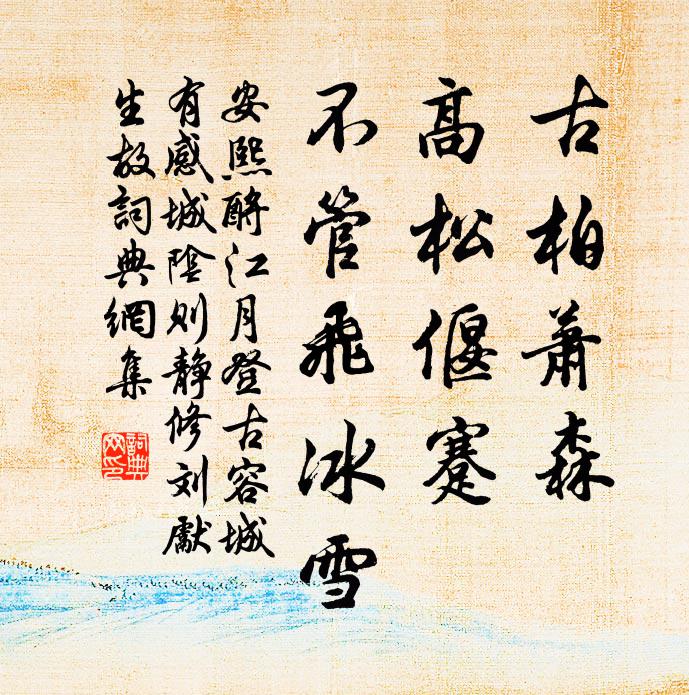 古柏萧森
高松偃蹇
不管飛冰雪
安熙酹江月登古容城
有感城陰则静修刘獻
生故詞典網集
詞典網印